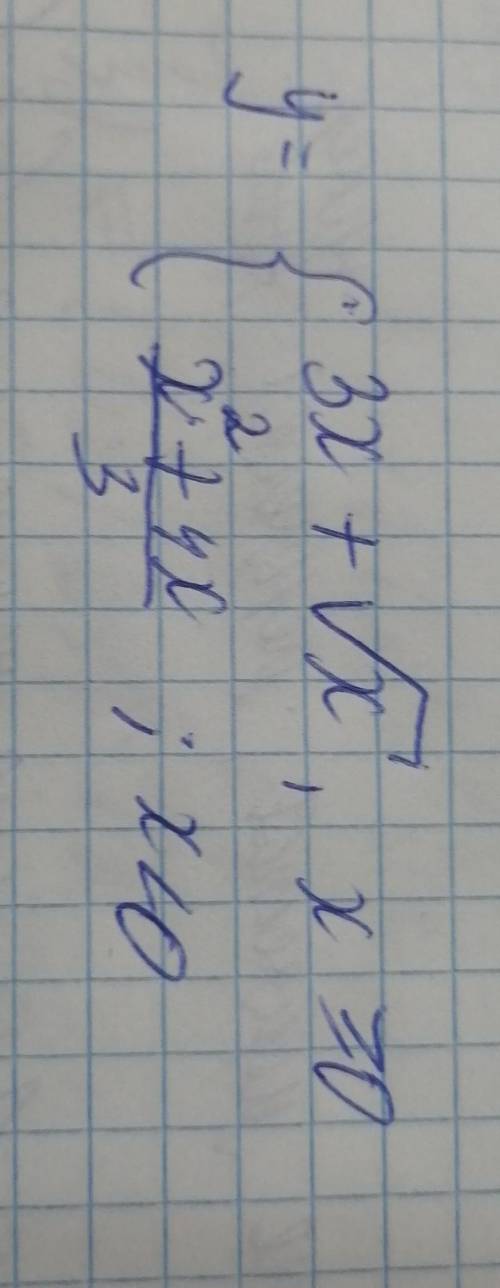 y = { 3x + √x , x ≥ 0
x² + 4x / 3 ; x < 0